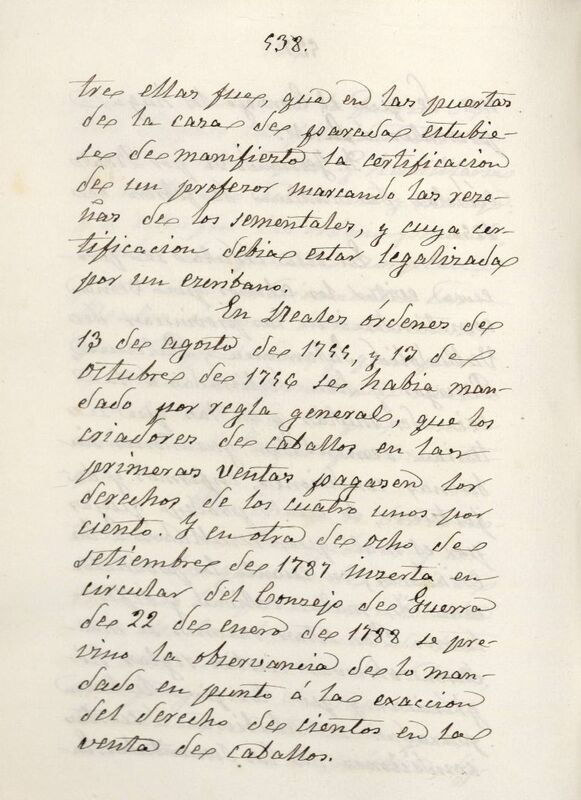 538.
tre ellas fue, que en las puertas
de la casa de parada estubie-
se de manifiesto la certificacion
de un profesor marcando las rese-
ñas de los sementales, y cuya cer-
tificacion debia estar legalizada
por un escribano.
En Reales ordenes de
13 de agosto de 1755, y 17 de
octubre de 1756 se habia man-
dado por regla general, que los
criadores de caballos en las
primeras ventas pagasen los
derechos de los cuatro unos por
ciento. Y en otra de ocho de
setiembre de 1787 inserta en
circular del Consejo de Guerra
de 22 de enero de 1788 se pre-
vino la observancia de lo man-
dado en punto á la exaccion
del derecho de cientos en la
venta de caballos.